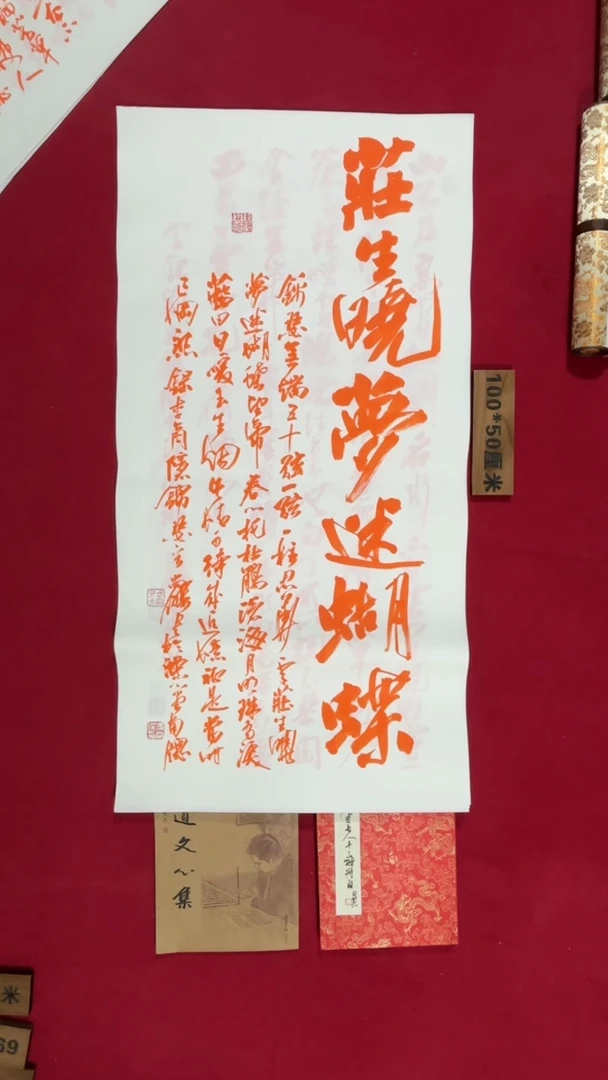 莊生曉夢迷蝴蝶
錦瑟無端五十弦一弦一柱思華年莊生曉
夢迷蝴蝶望帝春心托杜鵑滄海月明珠有淚
藍田日暖玉生烟此情可待成追憶祇是當時
已惘然 錄李商隱錦瑟
100*50厘米
道文心集
米
69